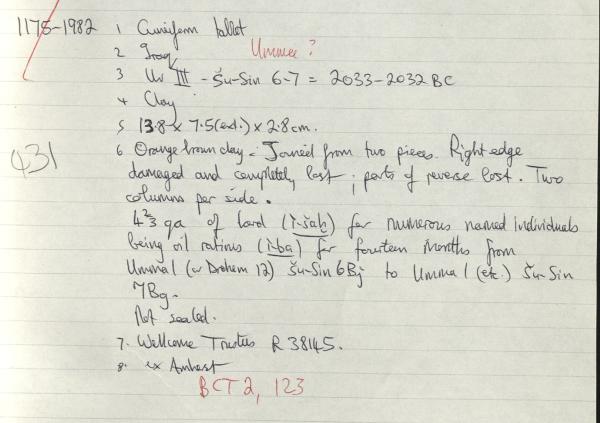 1175-1982 1 Cuneiform tablet
2 Iraq Umma ?
3 Ur III - Šu-Sin 6-7 = 2033-2032 BC
4 Clay
5 13.8 x 7.5 (ext.) x 2.8 cm.
431 6 Orange brown clay. Joined from two pieces. Right edge
damaged and completely lost ; parts of reverse lost. Two
columns per side.
42/3 qa of lard (ì-šaḫ) for numerous named individuals
being oil rations (ì-ba) for fourteen months from
Umma 1 (or Drehem 12) Šu-Sin 6 to Umma 1 (etc.) Šu-Sin
Not sealed.
7. Wellcome Trustees R 38145.
8. ex Amherst
BCT 2, 123